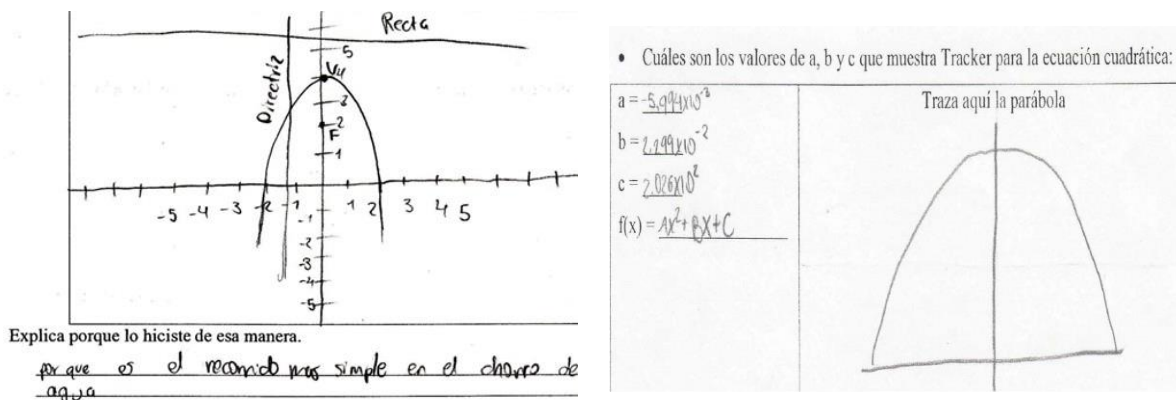 Recta
5
Directriz
V4
3
2
F
1
-5 -4 -3 -2 -1 1 2 3 4 5
-1
-2
-3
-4
-5
Explica porque lo hiciste de esa manera.
por que es el recorrido mas simple en el chorro de
agua
• Cuáles son los valores de a, b y c que muestra Tracker para la ecuación cuadrática:
a = -5,994x10⁻³
b = 2.299x10⁻²
c = 2.026x10²
f(x) = Ax²+Bx+C
Traza aquí la parábola